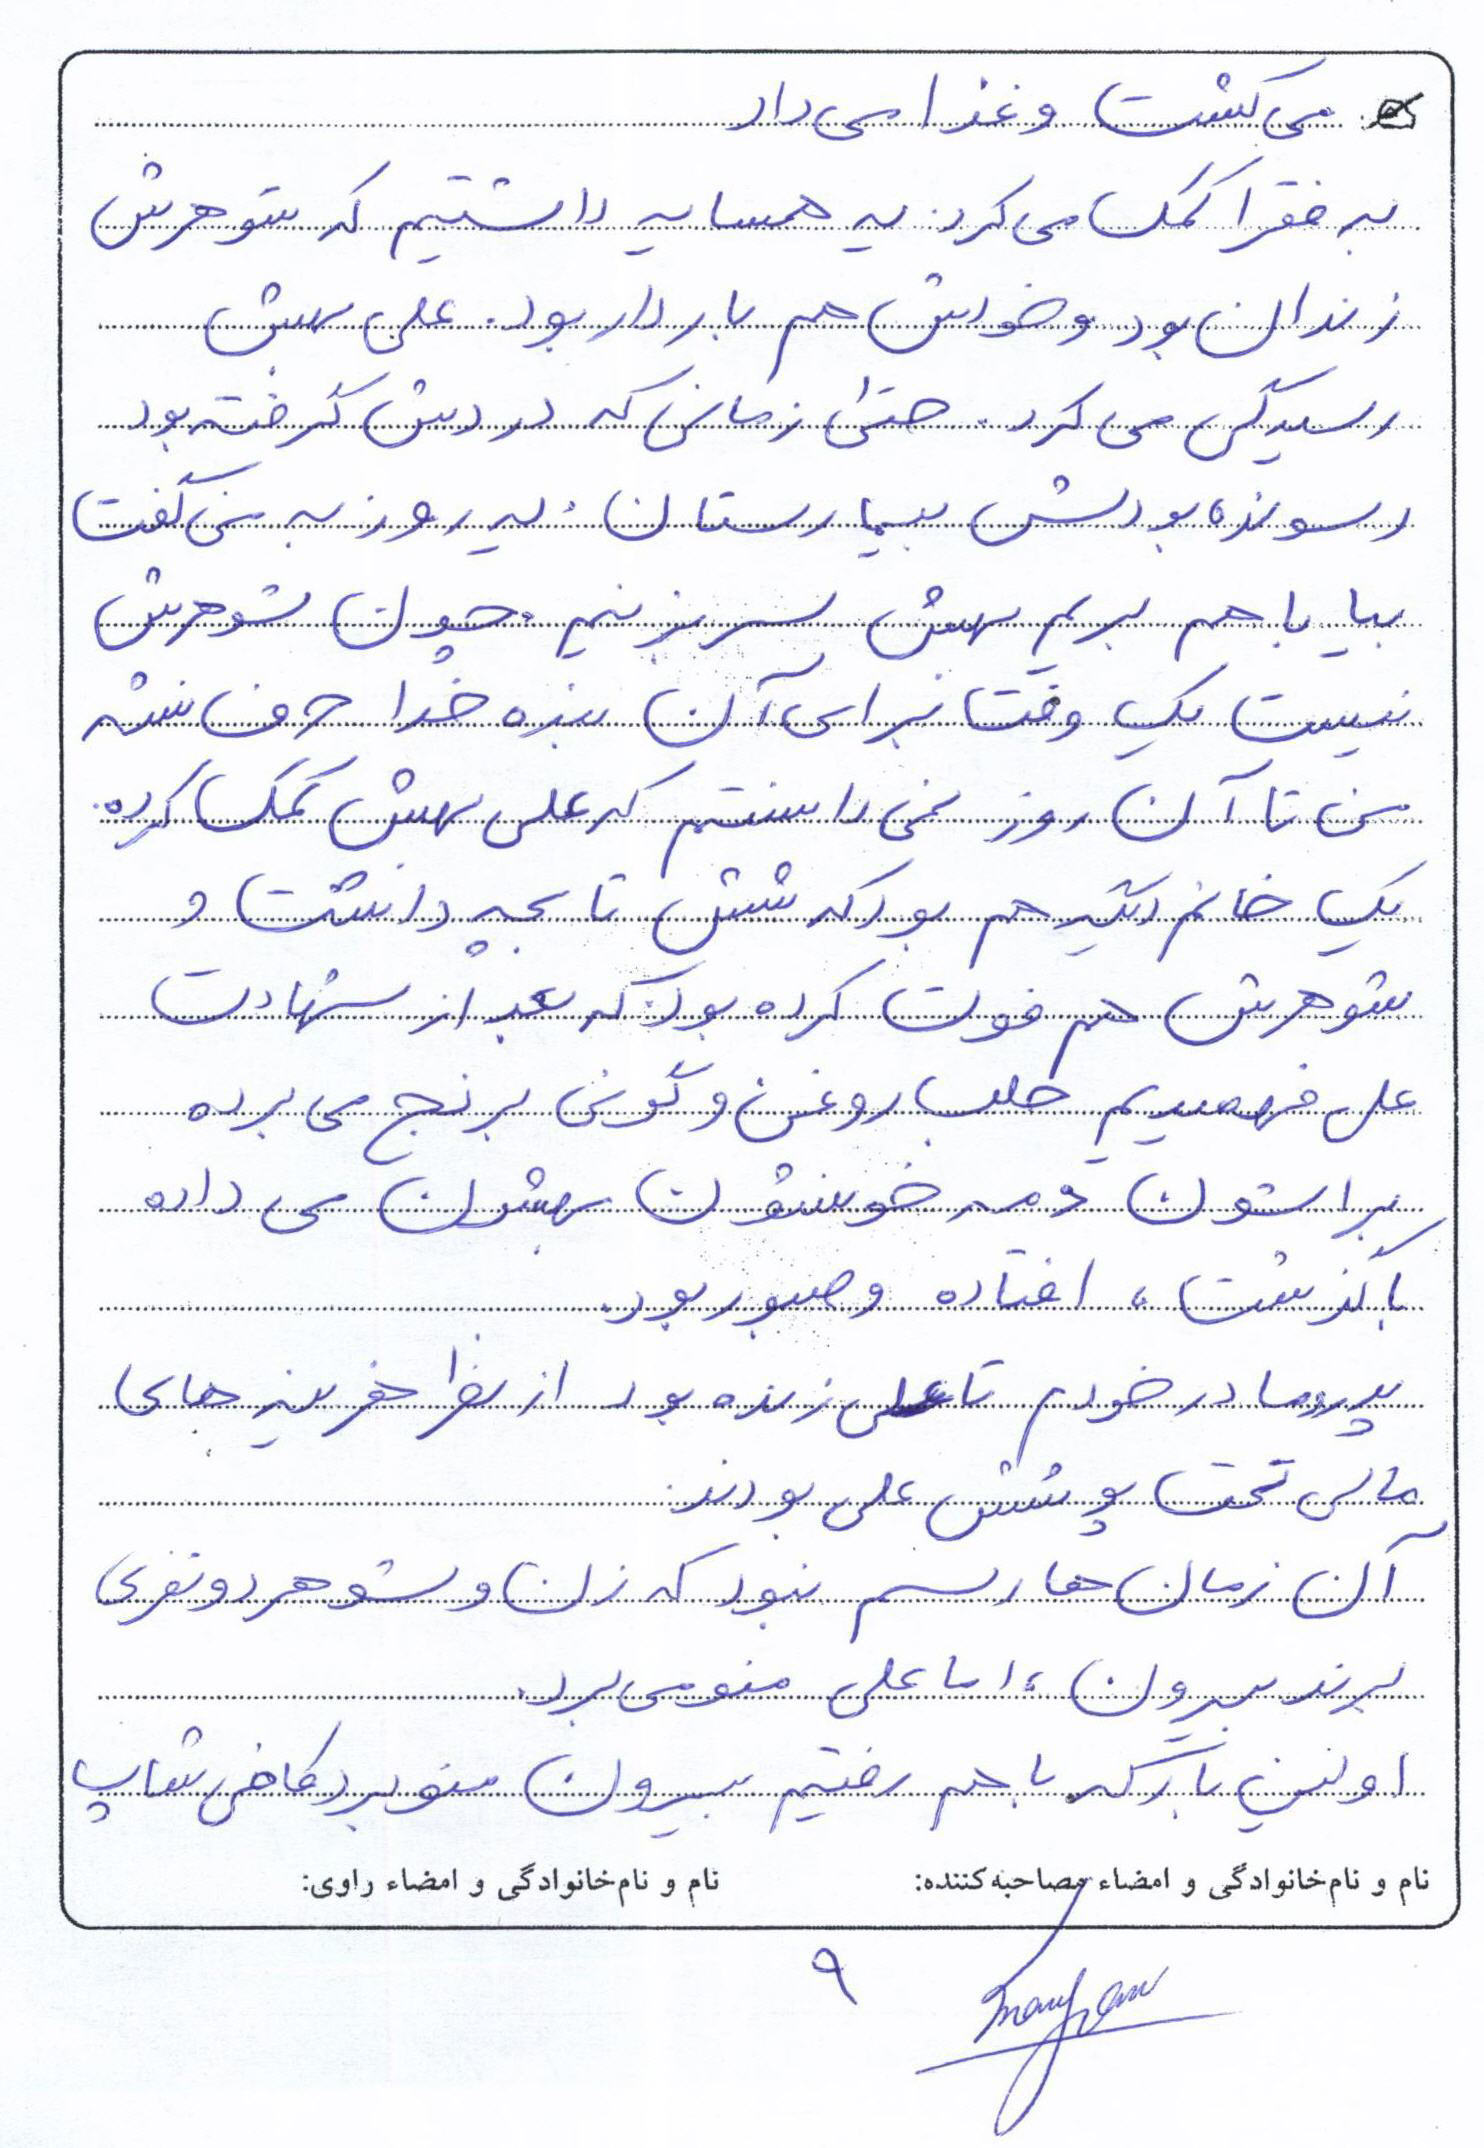 می‌کشت و غذا می‌داد
به فقرا کمک می‌کرد. یه همسایه داشتیم که شوهرش
زندان بود و خودش هم باردار بود. علی بهش
رسیدگی می‌کرد. حتی زمانی که دردش گرفته بود
رسونده بودش بیمارستان. یه روز به من گفت
بیا با هم بریم بهش سر بزنیم. چون شوهرش
نیست یک وقت برای آن بنده خدا حرف نشه
من تا آن روز نمی دانستم که علی بهش کمک کرده.
یک خانم دیگه هم بود که شش تا بچه داشت و
شوهرش هم فوت کرده بود که بعد از شهادت
علی فهمیدیم حلب روغن و گونی برنج می برده
براشون و مه خونشون بهشون می داده
باگذشت، افتاده و صبور بود.
پدر و مادر خودم تا علی زنده بود از نظر هزینه های
مالی تحت پوشش علی بودند.
آن زمان ها رسم نبود که زن و شوهر دو نفری
برند بیرون، اما علی منو می برد.
اولین بار که با هم رفتیم بیرون منو برد کافی شاپ
نام و نام‌خانوادگی و امضاء مصاحبه‌کننده: نام و نام‌خانوادگی و امضاء راوی:
۹
Maryam